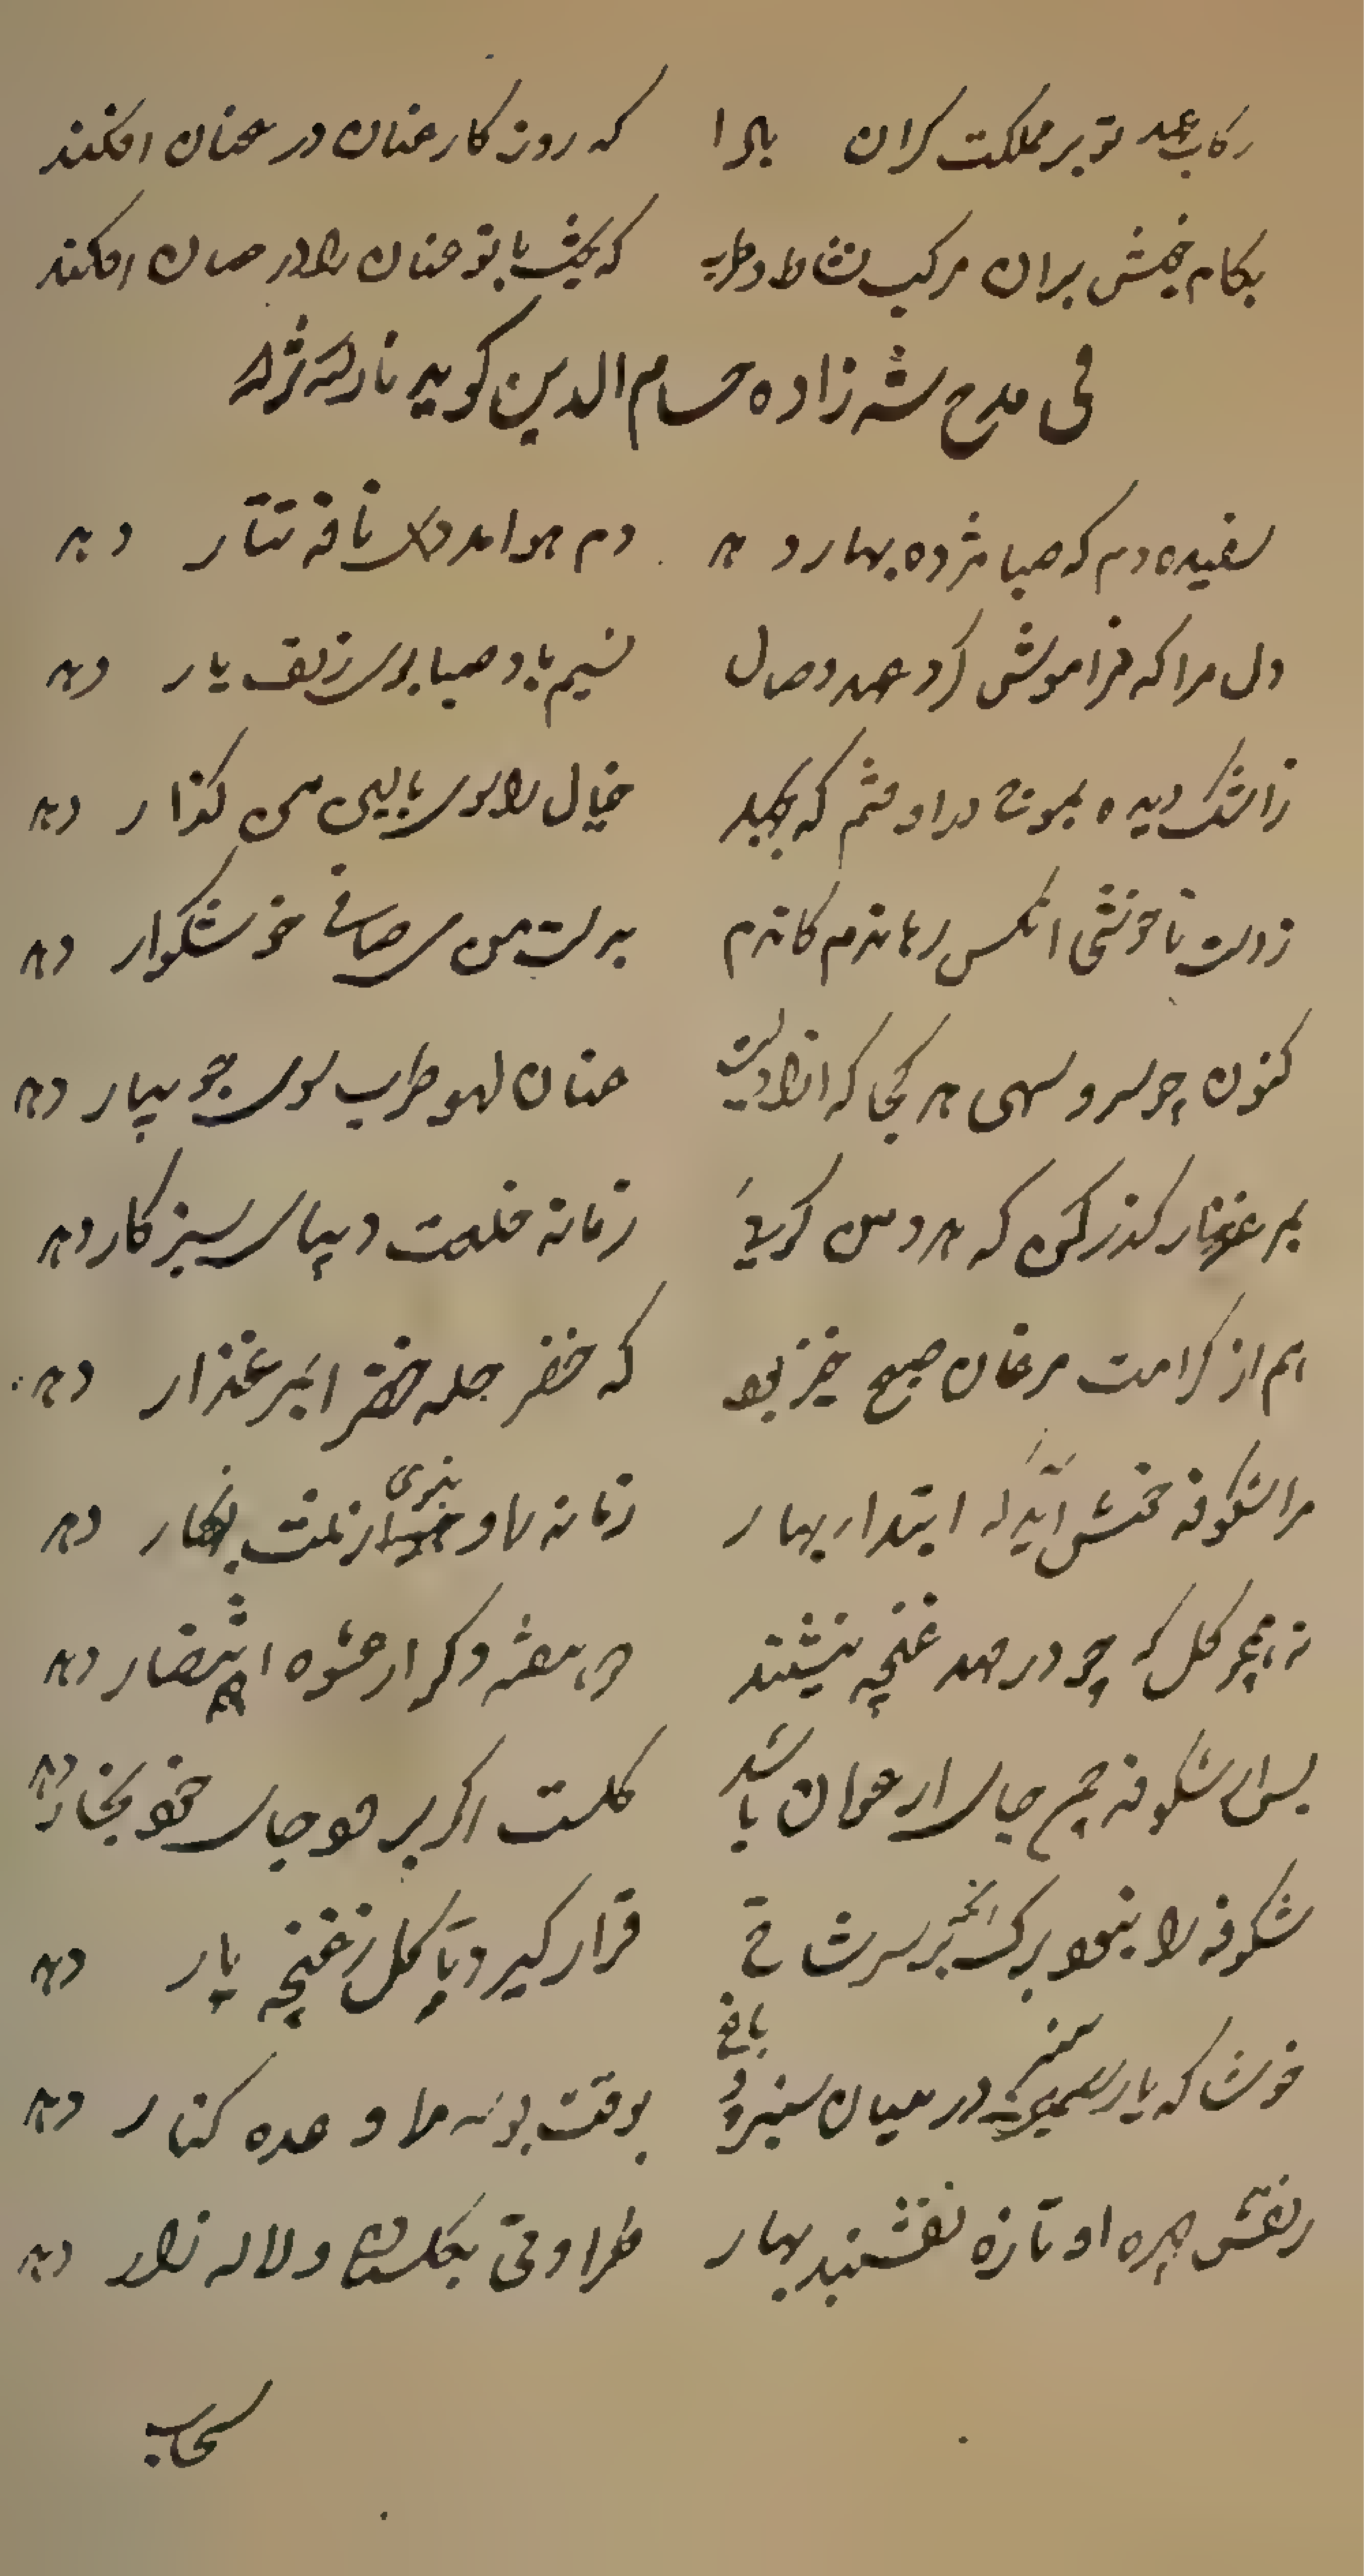 رکاب عهد تو بر مملکت کران بادا که روزکار عنان در عنان افکند
بکام خویش بران مرکب نشاط و طرب که با تو عنان را در عنان افکند
فی مدح شه زاده حسام الدین کوید
سفیده دم که صبا مژده بهار دهد دم هوا مدد نافه تتار دهد
دل مرا که فراموش کرد عهد وصال نسیم باد صبا بوی زلف یار دهد
ز اشک دیده بموج در اوفتم که خیال را بوی بالین من کذار دهد
ز دست ناخوشی انکس رهاندم کاندم بدست من می صافی خوشکوار دهد
کنون چو سرو سهی هر کجا که ازادیست عنان لهو طرب سوی جویبار دهد
بمرغزار کذر کن که هر دمش زمانه خلعت دیبای سبزکار دهد
هم از کرامت مرغان صبح خیز بود که خضر حله خضرا بمرغزار دهد
مرا شکوفه خوش اید که ابتدای بهار زمانه را بنوی نکار دهد
نه همچو کل که چو در مهد غنچه بنشیند دکر از عشوه انتضار دهد
پس از شکوفه چمن جای ارغوان باشد کلست اکر بر خود جای خود بخار دهد
شکوفه را بنود برک انکه بر سر شاخ قرار کیرد تا کل ز غنچه بار دهد
خوشا که یار سمنبر در میان سبزه و باغ بوقت بوسه مرا وعده کنار دهد
ز نقش چهره او تازه نقشبند بهار طراوتی بکلستان و لاله زار دهد
سحاب